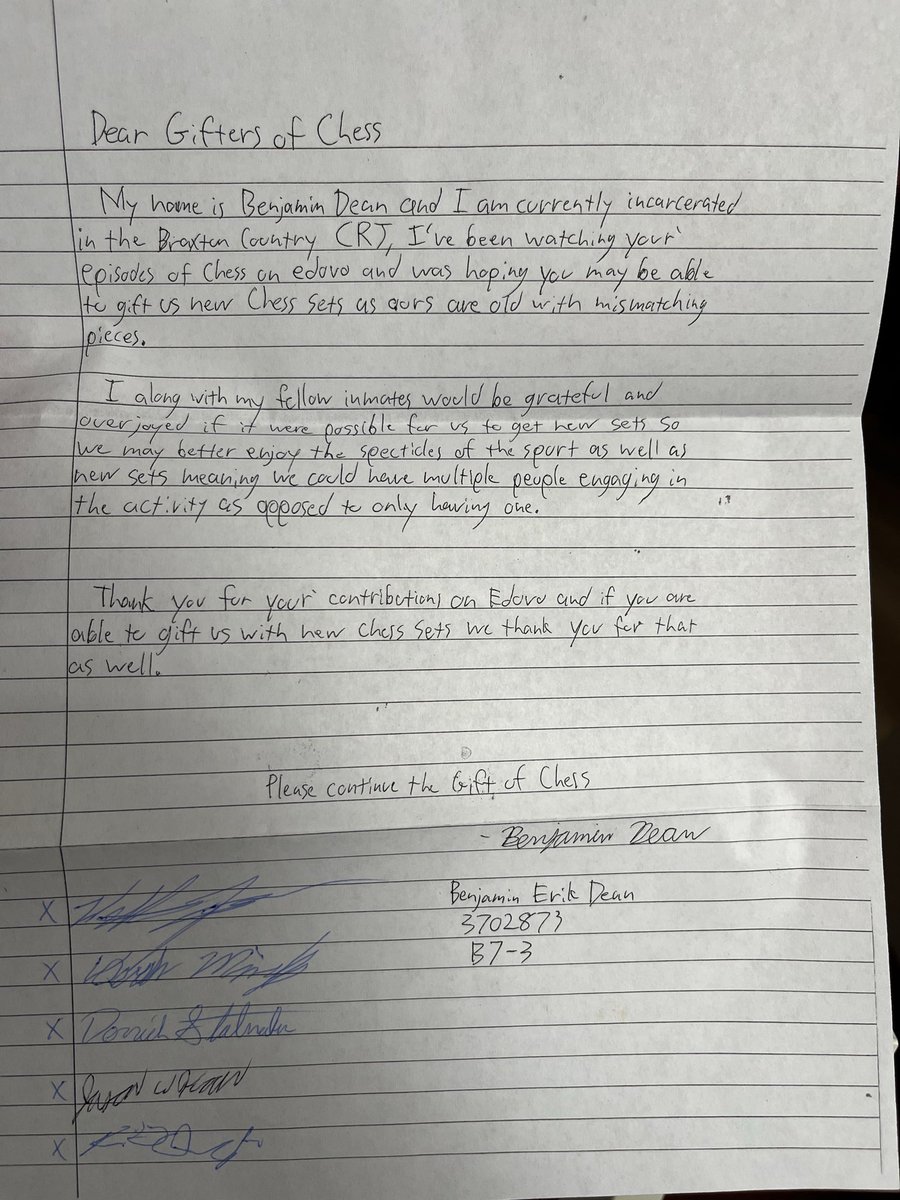 Dear Gifters of Chess
My name is Benjamin Dean and I am currently incarcerated
in the Braxten Country CRJ, I've been watching your
episodes of Chess on edovo and was hoping you may be able
to gift us new Chess sets as ours are old with mismatching
pieces.
I along with my fellow inmates would be grateful and
overjoyed if it were possible for us to get new sets so
we may better enjoy the specticles of the sport as well as
new sets meaning we could have multiple people engaging in
the activity as opposed to only having one.
Thank you for your contributions on Edovo and if you are
able to gift us with new Chess sets we thank you for that
as well.
Please continue the Gift of Chess
- Benjamin Dean
Benjamin Erik Dean
3702873
B7-3
X
X
X
X Jason
X